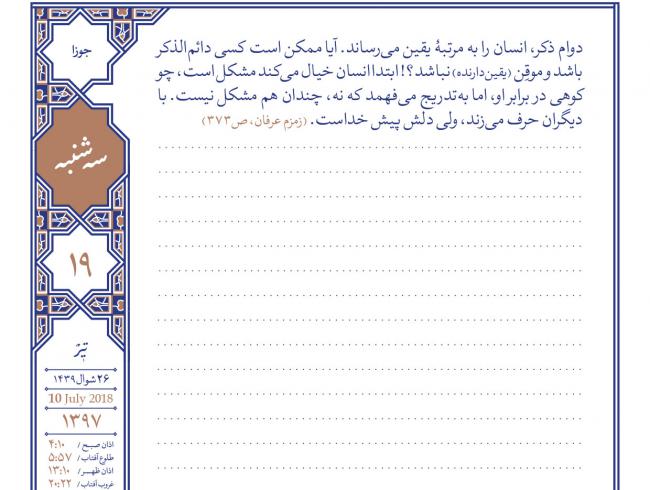 دوام ذکر، انسان را به مرتبهٔ یقین می‌رساند. آیا ممکن است کسی دائم‌الذکر
باشد و موقِن (یقین‌دارنده) نباشد؟! ابتدا انسان خیال می‌کند مشکل است، چو
کوهی در برابر او، اما به‌تدریج می‌فهمد که نه، چندان هم مشکل نیست. با
دیگران حرف می‌زند، ولی دلش پیش خداست. (زمزم عرفان، ص۳۷۳)
جوزا
سه شنبه
۱۹
تیر
۲۶ شوال ۱۴۳۹
10 July 2018
۱۳۹۷
اذان صبح / ۴:۱۰
طلوع آفتاب / ۵:۵۷
اذان ظهر / ۱۳:۱۰
غروب آفتاب / ۲۰:۲۲